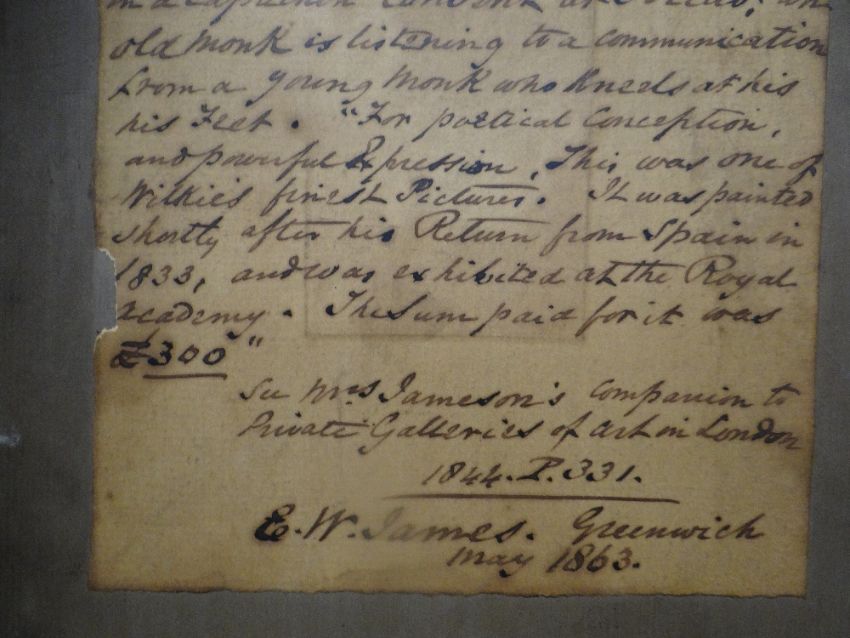 in a Capuchin Convent at Toledo, an
old Monk is listening to a communication
from a young Monk who Kneels at his
his Feet. "For poetical Conception,
and powerful Expression, This was one of
Wilkie's finest Pictures. It was painted
shortly after his Return from Spain in
1833, and was exhibited at the Royal
Academy. The Sum paid for it was
£300"
See Mrs Jameson's companion to
Private Galleries of Art in London
1844. P. 331.
E. W. James. Greenwich
May 1863.